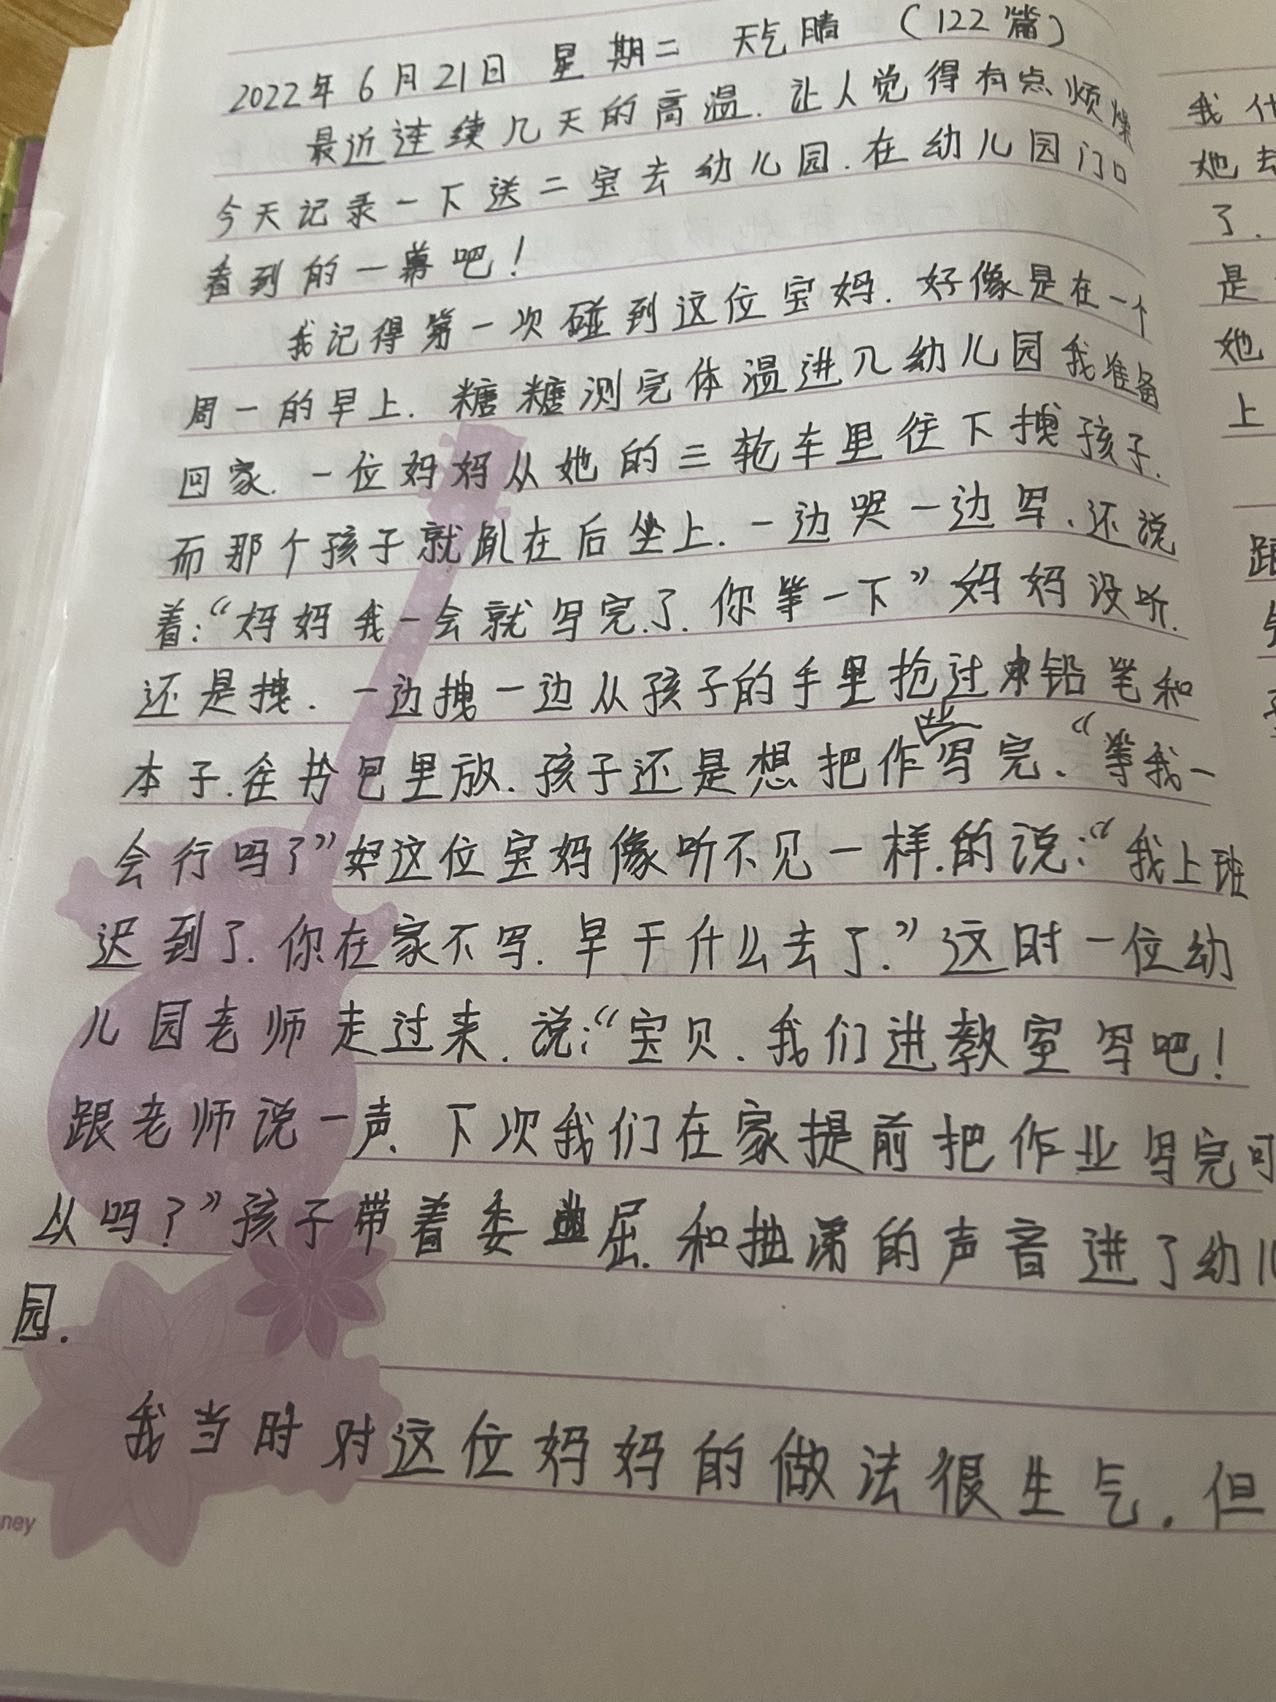 2022年6月21日 星期二 天气晴 (122篇)
最近连续几天的高温.让人觉得有点烦燥
今天记录一下送二宝去幼儿园.在幼儿园门口
看到的一幕吧!
我记得第一次碰到这位宝妈.好像是在一个
周一的早上.糖糖测完体温进入幼儿园我准备
回家.一位妈妈从她的三轮车里往下拽孩子.
而那个孩子就趴在后坐上.一边哭一边写.还说
着:“妈妈我一会就写完了.你等一下”妈妈没听.
还是拽.一边拽一边从孩子的手里抢过铅笔和
本子.往书包里放.孩子还是想把作业写完.“等我一
会行吗?”好这位宝妈像听不见一样.的说:“我上班
迟到了.你在家不写.早干什么去了.”这时一位幼
儿园老师走过来.说:“宝贝.我们进教室写吧!
跟老师说一声.下次我们在家提前把作业写完可
以吗?”孩子带着委屈.和抽涕的声音进了幼儿
园.
我当时对这位妈妈的做法很生气.但
ney
我
她去
了.
是
她
上
跟